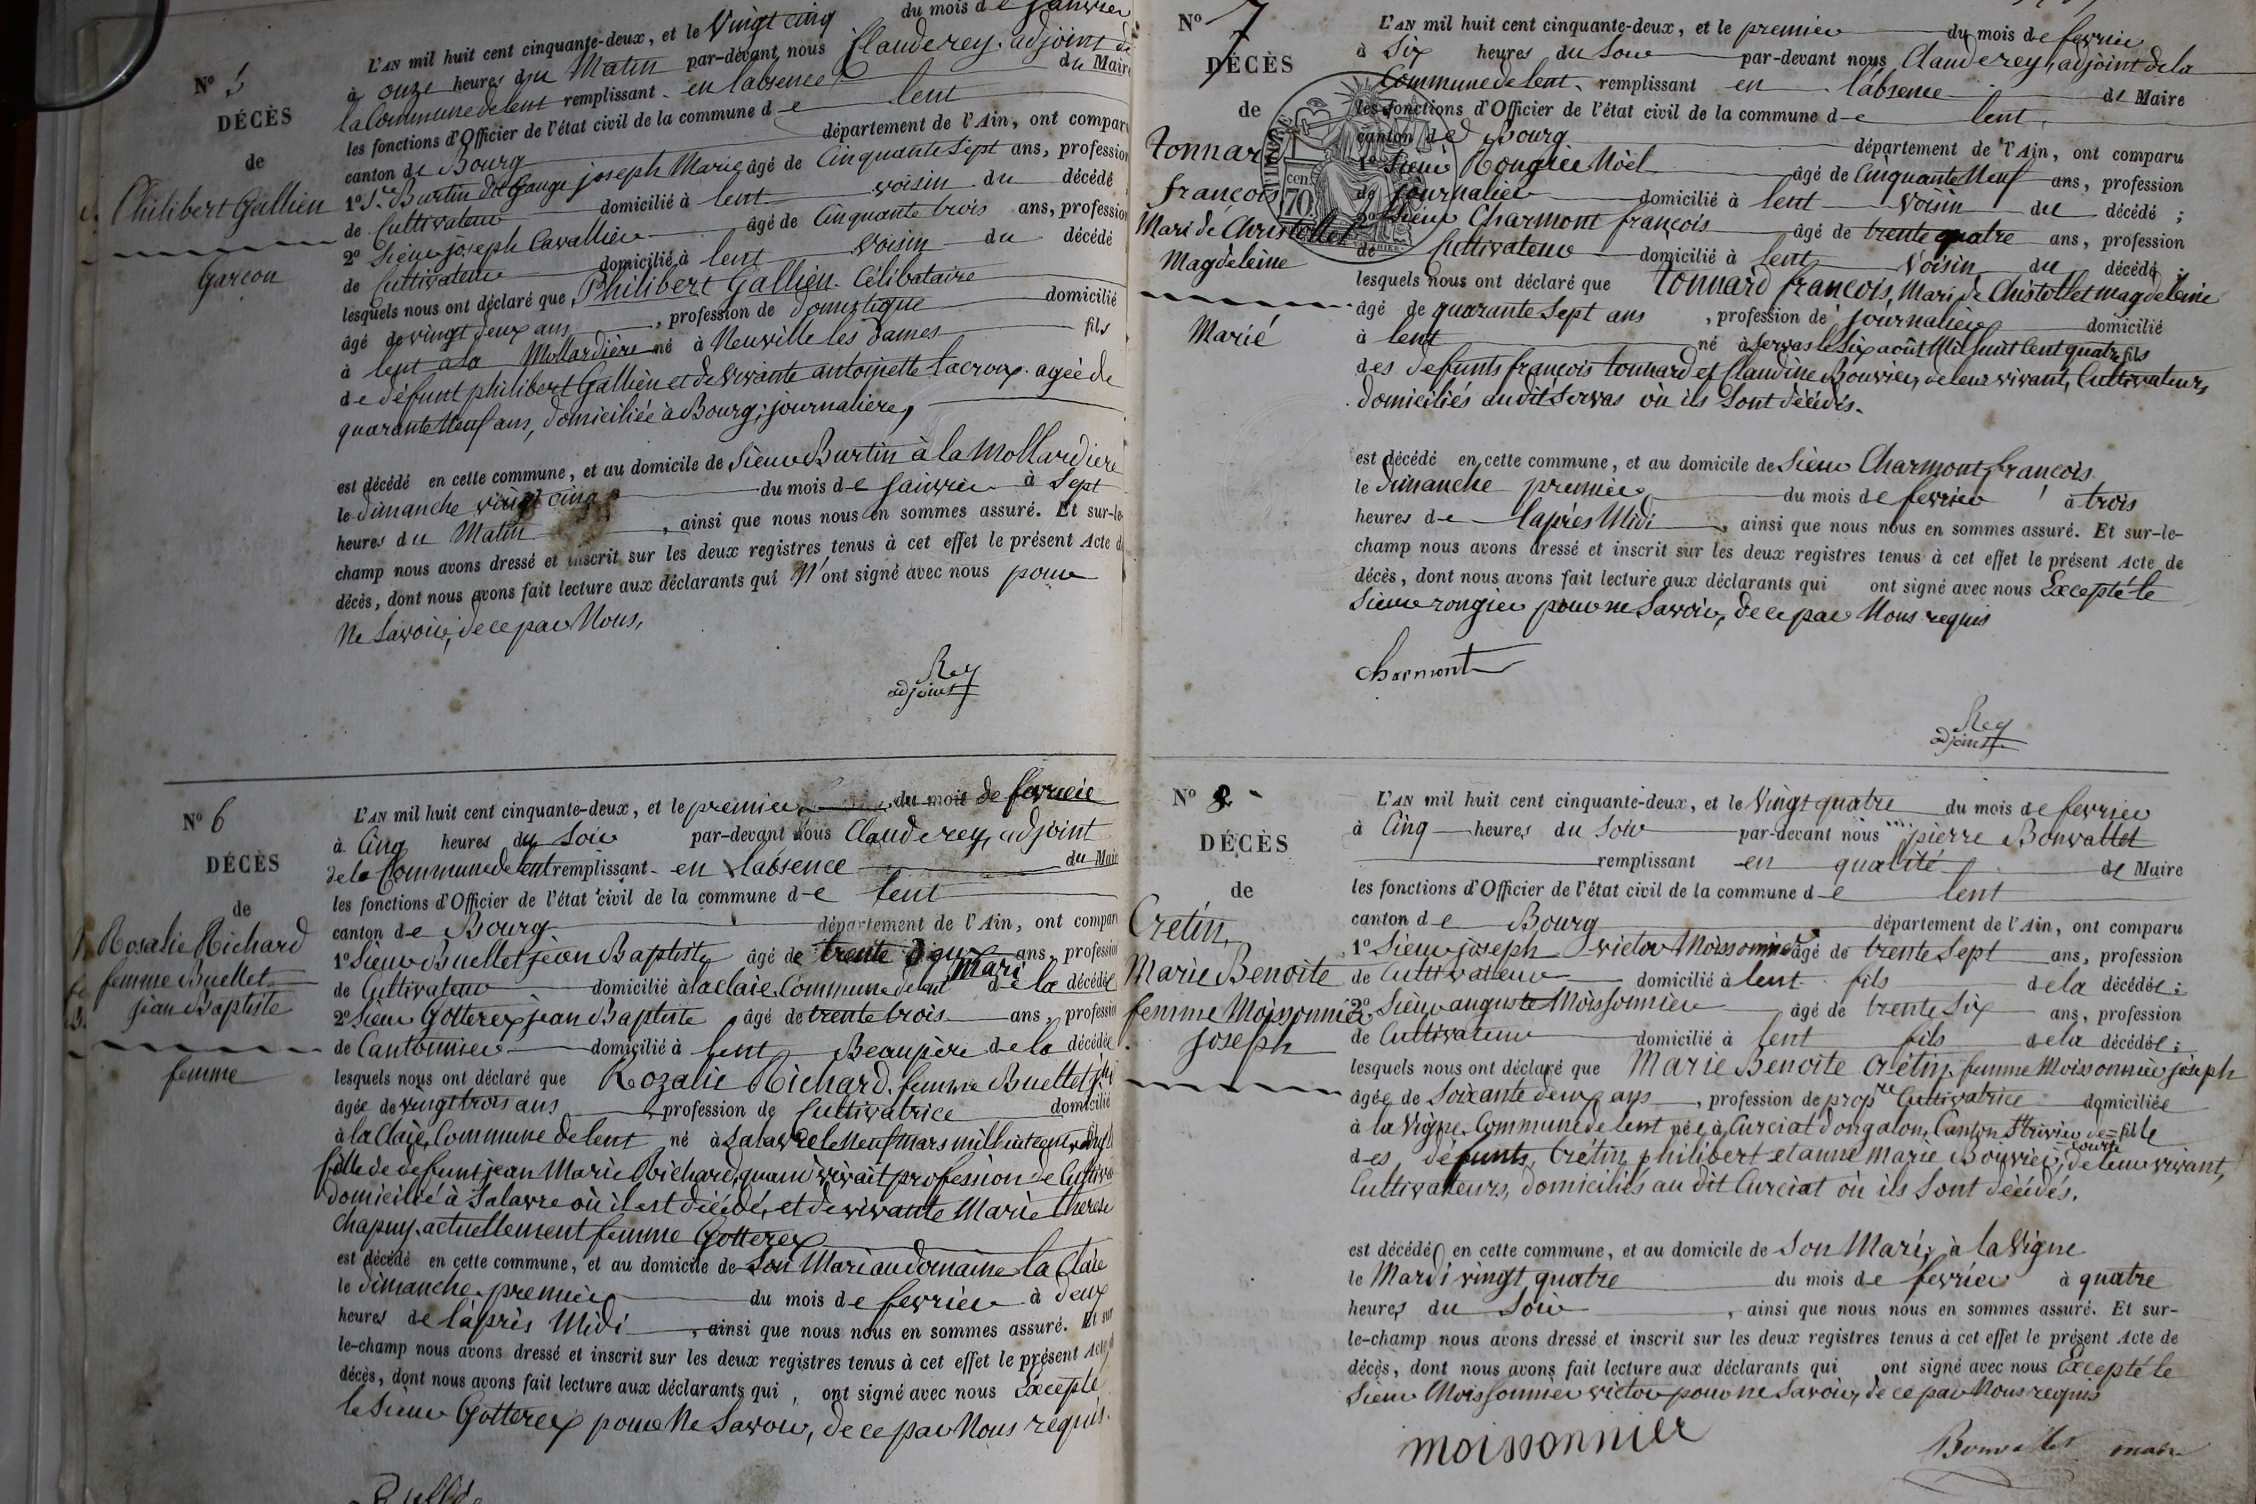 du mois de Janvier
L'AN mil huit cent cinquante-deux, et le Vingt cinq
à onze heures du Matin par-devant nous Claude rey, adjoint de
la Commune de lent remplissant en l'absence du Maire
les fonctions d'Officier de l'état civil de la commune de lent
canton de Bourg département de l'Ain, ont comparu
1° Sr Burtin dit Gauge joseph Marie âgé de Cinquante Sept ans, profession
de Cultivateur domicilié à lent voisin du décédé
2° Sieur joseph Cavallier âgé de Cinquante trois ans, profession
de Cultivateur domicilié à lent voisin du décédé
lesquels nous ont déclaré que Philibert Gallien Célibataire
âgé de vingt deux ans, profession de domestique domicilié
à lent à la Mollardière né à Neuville les Dames fils
de défunt philibert Gallien et de vivante antoinette Lacroix agée de
quarante Neuf ans, domiciliée à Bourg, journalière,
est décédé en cette commune, et au domicile de Sieur Burtin à la Mollardière
le dimanche vingt cinq du mois de Janvier à Sept
heures du Matin, ainsi que nous nous en sommes assuré. Et sur-le-
champ nous avons dressé et inscrit sur les deux registres tenus à cet effet le présent Acte de
décès, dont nous avons fait lecture aux déclarants qui N'ont signé avec nous pour
Ne Savoir, de ce par Nous,
Rey
adjoint
N° 5
DÉCÈS
de
Philibert Gallien
Garçon
N° 6
DÉCÈS
de
Rosalie Richard
femme Buellet
jean Baptiste
femme
L'AN mil huit cent cinquante-deux, et le premier du mois de fevrier
à Cinq heures du Soir par-devant nous Claude rey, adjoint
de la Commune de lent remplissant en l'absence du Maire
les fonctions d'Officier de l'état civil de la commune de lent
canton de Bourg département de l'Ain, ont comparu
1° Sieur Buellet jean Baptiste âgé de trente deux ans, profession
de Cultivateur domicilié à la claie, Commune de lent Mari de la décédée
2° Sieur Gotterex jean Baptiste âgé de trente trois ans, profession
de Cantonnier domicilié à lent Beaupère de la décédée
lesquels nous ont déclaré que Rozalie Richard, femme Buellet
âgée de vingt trois ans, profession de Cultivatrice domicilié
à la Claie, Commune de lent, né à Salavre le Neuf mars mil huit cent vingt
fille de defunt jean Marie Richard, quand vivait profession de Cultiva
domicilié à Salavre où il est décédé, et de vivante Marie therese
Chapuy, actuellement femme Gotterex
est décédé en cette commune, et au domicile de Son Mari au domaine la Claie
le dimanche premier du mois de fevrier à deux
heures de l'après Midi, ainsi que nous nous en sommes assuré. Et sur
le-champ nous avons dressé et inscrit sur les deux registres tenus à cet effet le présent Acte
décès, dont nous avons fait lecture aux déclarants qui, ont signé avec nous Excepté
le Sieur Gotterex pour Ne Savoir, de ce par Nous requis.
N° 7
DÉCÈS
de
Tonnar
françois
Mari de Christollet
Magdeleine
Marié
L'AN mil huit cent cinquante-deux, et le premier du mois de fevrier
à Six heures du Soir par-devant nous Claude rey, adjoint de la
Commune de lent, remplissant en l'absence de Maire
les fonctions d'Officier de l'état civil de la commune de lent
canton de Bourg département de l'Ain, ont comparu
1° Sieur Rongier Noël âgé de Cinquante Neuf ans, profession
de journalier domicilié à lent Voisin du décédé ;
2° Sieur Charmont françois âgé de trente quatre ans, profession
de Cultivateur domicilié à lent Voisin du décédé ;
lesquels nous ont déclaré que Tonnard françois, Mari de Christollet magdeleine
âgé de quarante Sept ans, profession de journalier domicilié
à lent né à Servas le Six août Mil huit Cent quatre fils
des defunts françois tonnard et Claudine Bouvier, de leur vivant, Cultivateurs,
domiciliés audit Servas où ils Sont décédés.
est décédé en cette commune, et au domicile de Sieur Charmont françois
le dimanche premier du mois de fevrier à trois
heures de l'après Midi, ainsi que nous nous en sommes assuré. Et sur-le-
champ nous avons dressé et inscrit sur les deux registres tenus à cet effet le présent Acte de
décès, dont nous avons fait lecture aux déclarants qui ont signé avec nous Excepté le
Sieur rongier pour ne Savoir, de ce par Nous requis
Charmont
Rey
adjoint
N° 8
DÉCÈS
de
Cretin
Marie Benoite
femme Moissonnier
joseph
L'AN mil huit cent cinquante-deux, et le Vingt quatre du mois de fevrier
à Cinq heures du Soir par-devant nous pierre Bonvallet
remplissant en qualité de Maire
les fonctions d'Officier de l'état civil de la commune de lent
canton de Bourg département de l'Ain, ont comparu
1° Sieur joseph victor Moissonnier âgé de trente Sept ans, profession
de Cultivateur domicilié à lent fils de la décédée ;
2° Sieur auguste Moissonnier âgé de trente Six ans, profession
de Cultivateur domicilié à lent fils de la décédée ;
lesquels nous ont déclaré que Marie Benoite Crétin, femme Moissonnier joseph
âgée de Soixante deux ans, profession de propre Cultivatrice domiciliée
à la Vigne, Commune de lent née à Curciat dongalon, Canton St trivier de Courte fille
des défunts, Crétin philibert et anne marie Bouvier, de leur vivant,
Cultivateurs, domiciliés au dit Curciat où ils Sont décédés.
est décédé en cette commune, et au domicile de Son Mari, à la Vigne
le Mardi vingt quatre du mois de fevrier à quatre
heures du Soir, ainsi que nous nous en sommes assuré. Et sur-
le-champ nous avons dressé et inscrit sur les deux registres tenus à cet effet le présent Acte de
décès, dont nous avons fait lecture aux déclarants qui ont signé avec nous Excepté le
Sieur Moissonnier victor pour ne Savoir, de ce par Nous requis
moissonnier
Bonvallet maire